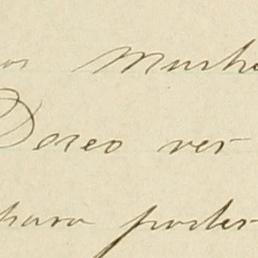 os Mucho
Deseo ver
para poder